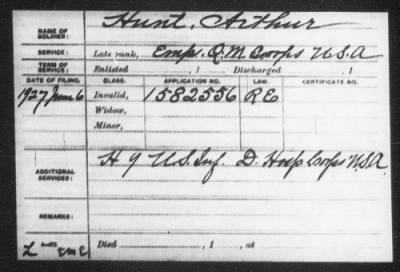 NAME OF SOLDIER: Hunt, Arthur
SERVICE: Late rank, Emp. Q.M. Corps U.S.A
TERM OF SERVICE: Enlisted , 1 Discharged , 1
DATE OF FILING. CLASS. APPLICATION NO. LAW. CERTIFICATE NO.
1927 June 6 Invalid, 1582556 RE
Widow,
Minor,
ADDITIONAL SERVICES: H 9 U.S. Inf. D. Hosp Corps U.S.A.
REMARKS:
Died , 1 , at